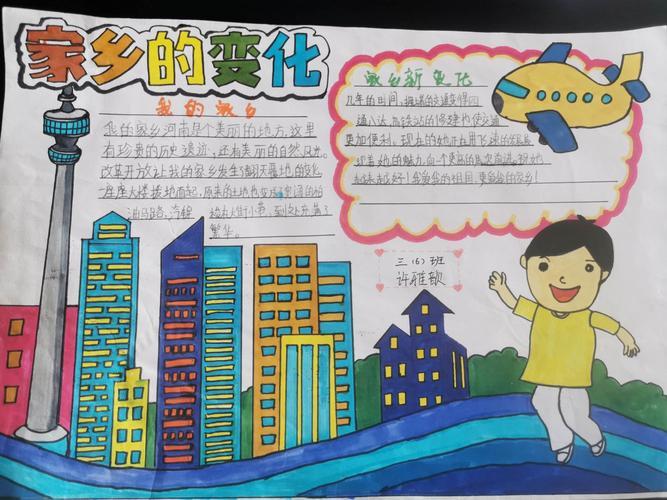 家乡的变化
我的家乡
我的家乡河南是个美丽的地方,这里
有珍贵的历史遗迹,还有美丽的自然风光。
改革开放让我的家乡发生了翻天覆地的变化
一座座大楼拔地而起,原来的土地也变成了宽阔的柏
油马路,汽车 大街小巷,到处充满了
繁华。
家乡新变化
几年的时间,拥堵的交通变得四
通八达,高铁站的修建也使交通
更加便利。现在的她正在用飞速的发展
她的魅力,向一个更高的 前进,祝她
越来越好!我爱我的祖国,更爱我的家乡!
三(6)班
许雅歆